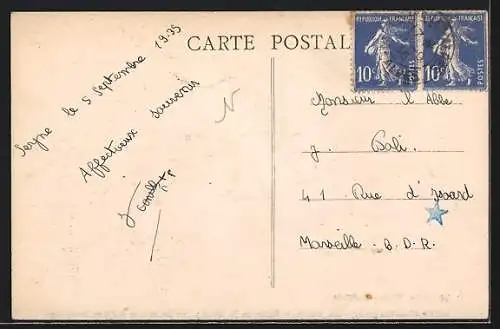 CARTE POSTALE
REPUBLIQUE FRANÇAISE
10c POSTES
REPUBLIQUE FRANÇAISE
10c POSTES
Seyne le 5 Septembre 1935
Affectueux souvenir
Monsieur l'Abbé
J. Bali.
41 Rue d'
Marseille. B.D.R.